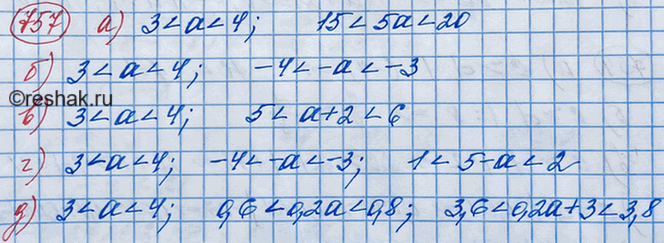 757 а) 3 < a < 4; 15 < 5a < 20
б) 3 < a < 4; -4 < -a < -3
©reshak.ru
в) 3 < a < 4; 5 < a+2 < 6
г) 3 < a < 4; -4 < -a < -3; 1 < 5-a < 2
д) 3 < a < 4; 0,6 < 0,2a < 0,8; 3,6 < 0,2a+3 < 3,8